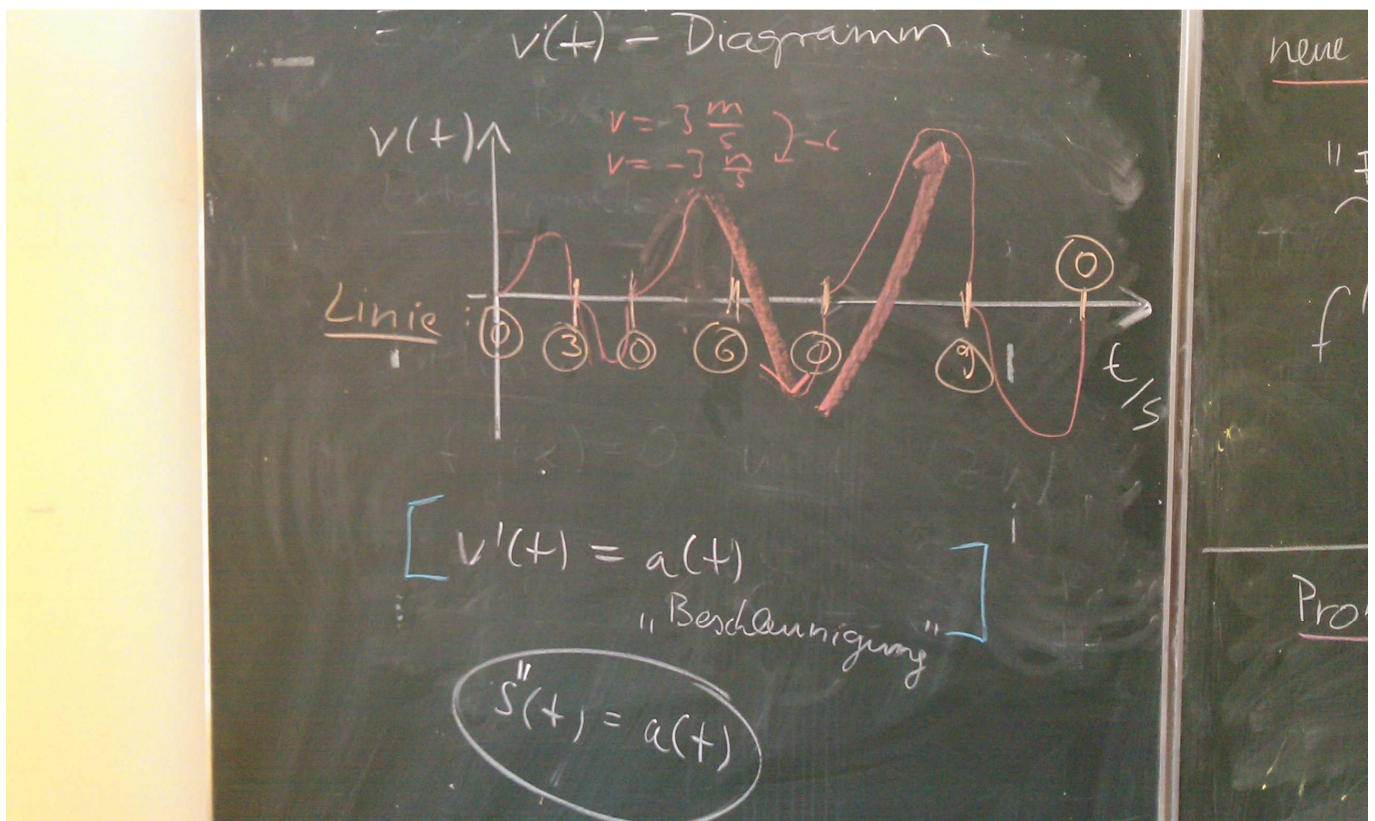 v(t) – Diagramm
v(t)
v = 3 m/s
v = -3 m/s
Linie :
0 3 0 6 0 9 0
t/s
v'(t) = a(t)
„Beschleunigung"
s''(t) = a(t)
neue
f'